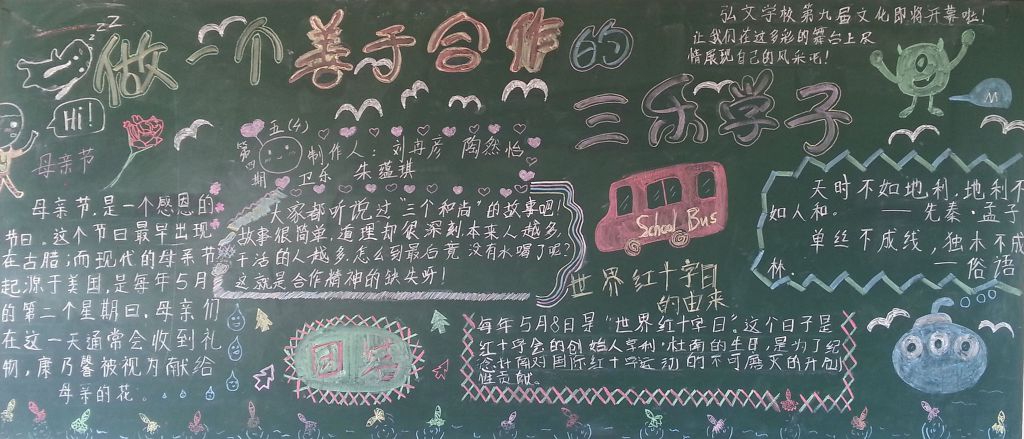 做一个善于合作的
三乐学子
弘文学校第九届文化即将开幕啦!
让我们在这多彩的舞台上尽
情展现自己的风采吧!
zzz
Hi!
母亲节
母亲节,是一个感恩的
节日,这个节日最早出现
在古腊;而现代的母亲节
起源于美国,是每年5月
的第二个星期日,母亲们
在这一天通常会收到礼
物,康乃馨被视为献给
母亲的花。
五(4)
第四期
制作人:刘冉彦 陶然怡
卫东 朱蕴琪
大家都听说过"三个和尚"的故事吧!
故事很简单,道理却很深刻本来人越多,
干活的人越多,怎么到最后竟没有水喝了呢?
这就是合作精神的缺失呀!
School Bus
世界红十字日
的由来
每年5月8日是"世界红十字日"。这个日子是
红十字会的创始人亨利·杜南的生日,是为了纪
念杜南对国际红十字运动的不可磨灭的开创
性贡献。
M
天时不如地利,地利不
如人和。 ——先秦·孟子
单丝不成线,独木不成
林. ——俗语
团结